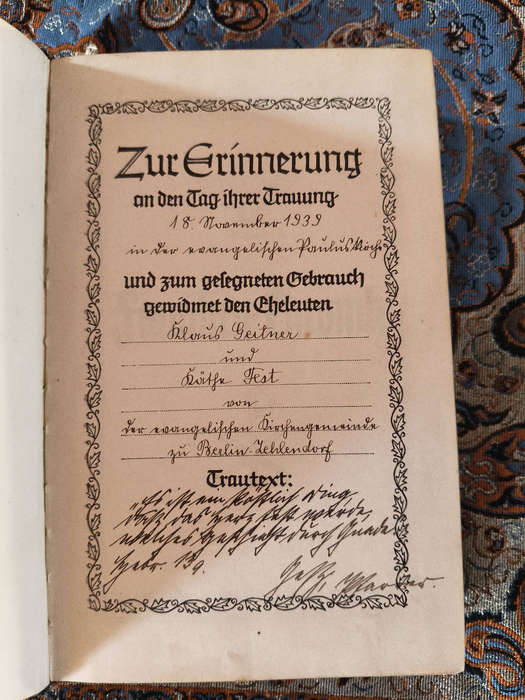 Zur Erinnerung
an den Tag ihrer Trauung
18. November 1939
in der evangelischen Pauluskirche
und zum gesegneten Gebrauch
gewidmet den Eheleuten
Klaus Geitner
und
Käthe Fest
von
der evangelischen Kirchengemeinde
zu Berlin-Zehlendorf
Trautext:
„Es ist ein köstlich Ding,
daß das Herz fest werde,
welches geschieht durch Gnade
Hebr. 13,9.
Pfarrer.